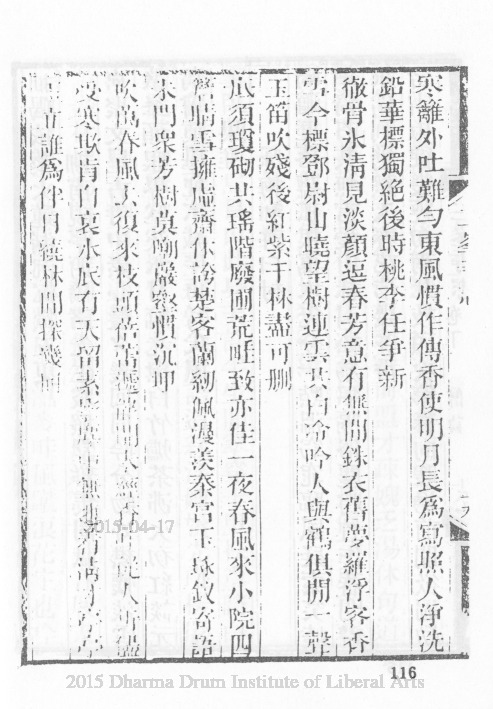 寒籬外吐難勻東風慣作傳香使明月長爲寫照人淨洗
鉛華標獨絕後時桃李任爭新
徹骨氷清見淡顏逗春芳意有無間銖衣舊夢羅浮客香
雪今標鄧尉山曉望樹連雲共白冷吟人與鶴俱閒一聲
玉笛吹殘後紅紫千林盡可刪
底須瓊砌共瑤階廢圃荒畦致亦佳一夜春風來小院四
簷晴雪擁虛齋休誇楚客蘭紉佩漫羨秦宮玉琢釵寄語
朱門衆芳樹莫嘲巖壑慣沉
吹萬春風去復來枝頭蓓蕾
受寒欺肯自哀水底有天留素影
誰爲伴日繞林間探幾
2015-04-17
116
2015 Dharma Drum Institute of Liberal Arts